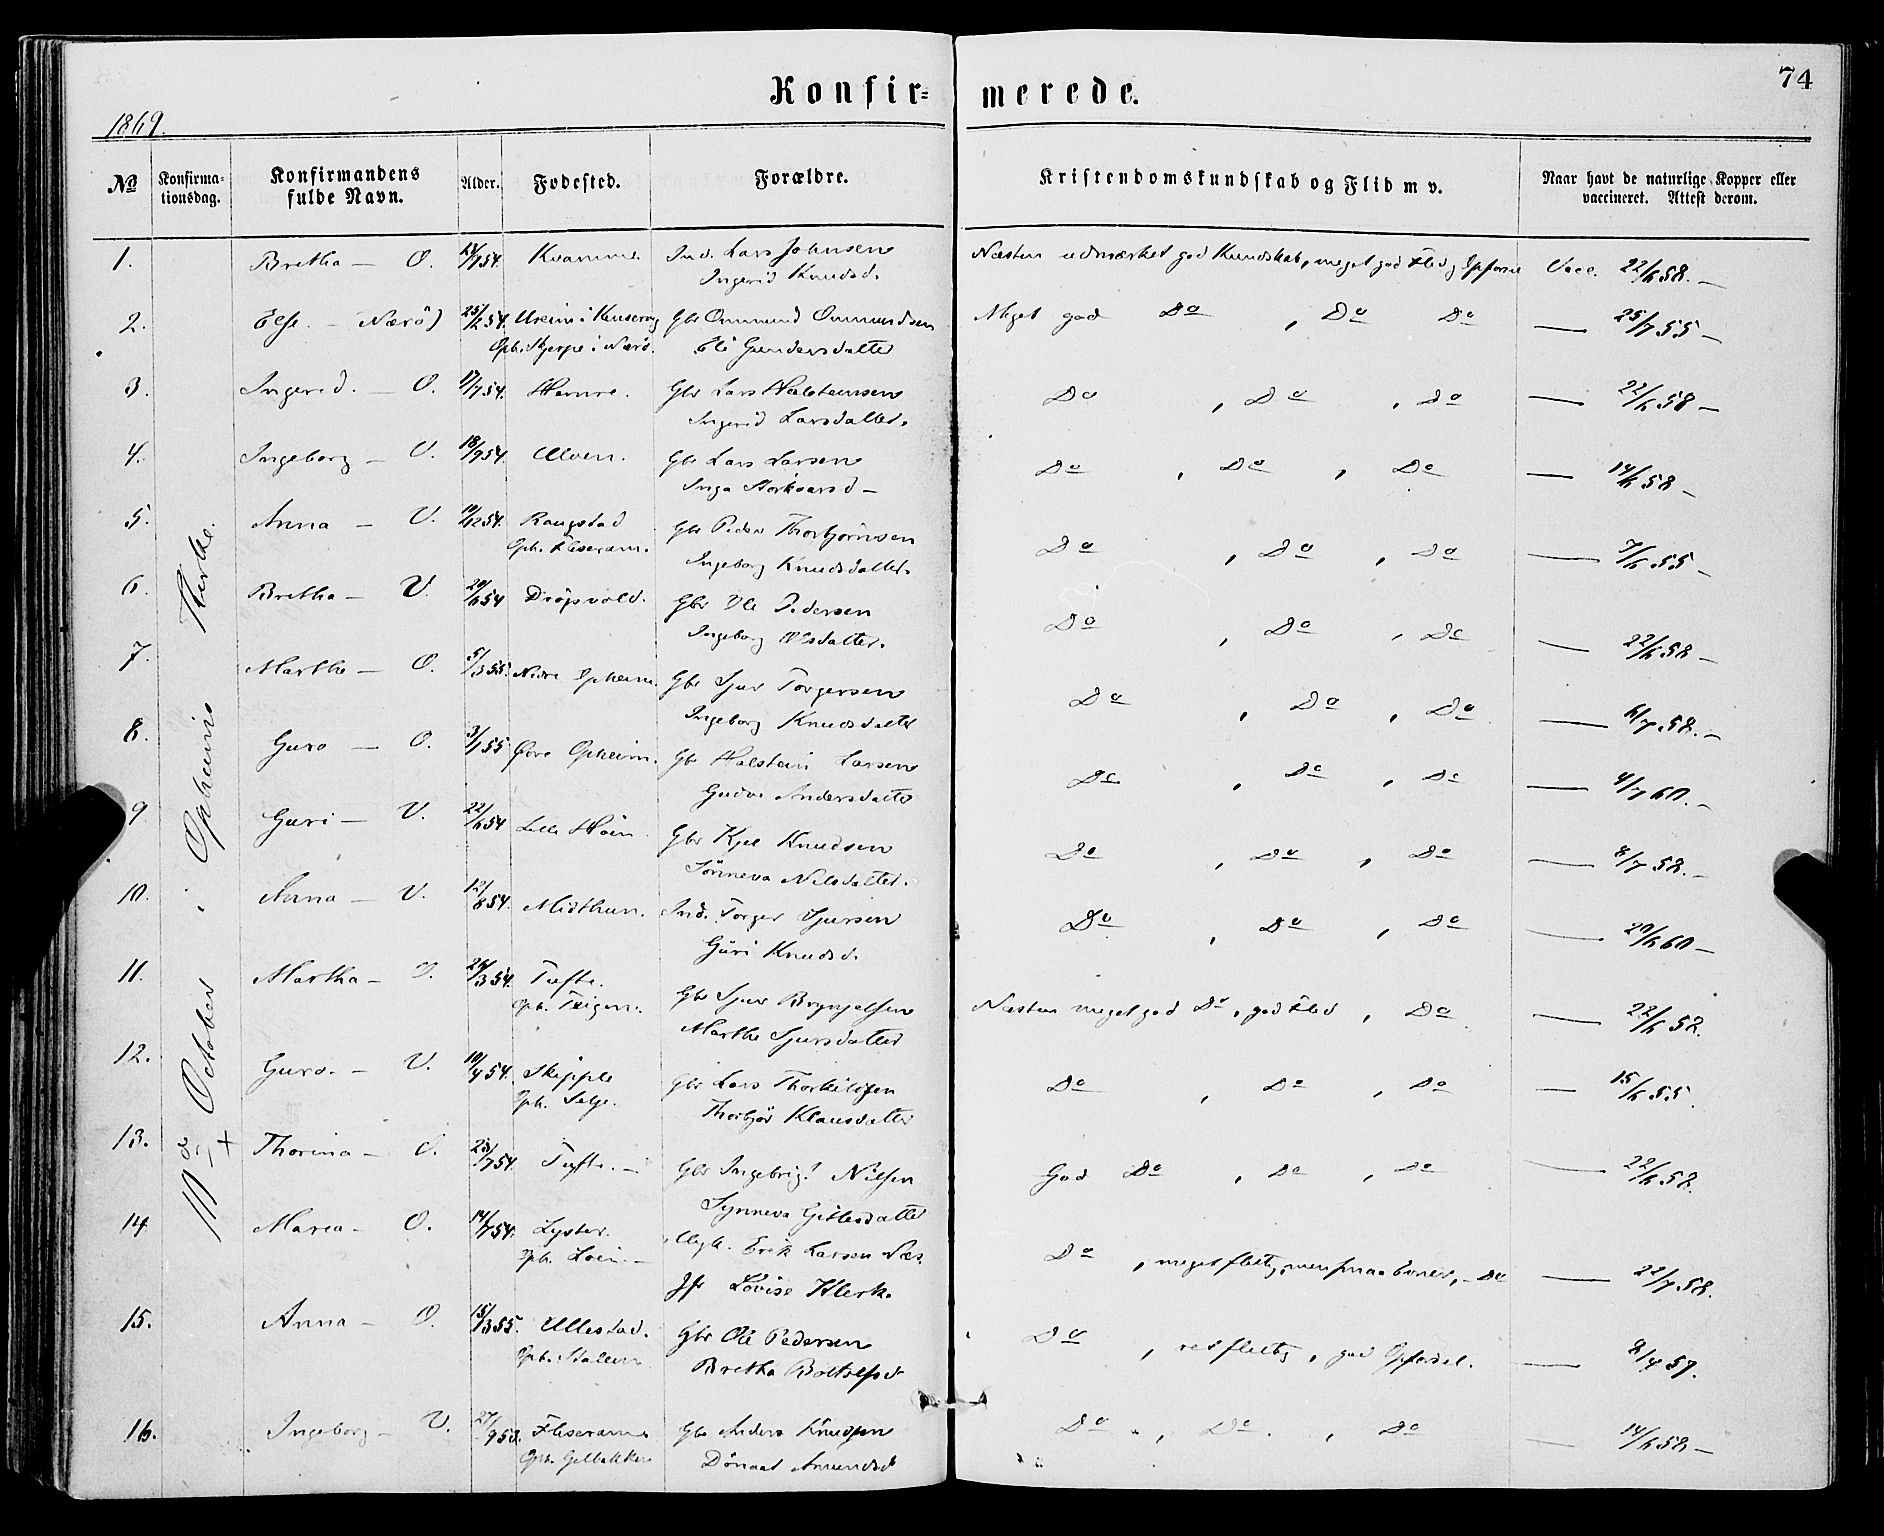 74
Konfir= merede.
1869.
No Konfirma-tionsdag. Konfirmandens fulde Navn. Alder. Fødested. Forældre. Kristendomskundskab og Flid m v. Naar havt de naturlige Kopper eller vaccineret. Attest derom.
10de October i Opheims Kirke.
1. Bretha — O. 54. Kvamme. Ind. Lars Johnsen Næsten udmærket god Kundskab, meget god Flid og Opførsel Vacc. 22/6 58. —
Ingerid Knudsd.
2. Else. — Nærö) 25/2 54. Gbr Ommund Ommundsen Meget god Do , Do Do — 25/7 55 —
Oph. i Nærö. Eli Gundersdatter
3. Ingerid. — O. 17/7 54. Hamre. Gbr Lars Halsteinsen Do , Do , Do — 22/6 58 —
Ingerid Larsdatter.
4. Ingeborg — V. 18/9 54. Ulven. Gbr Lars Larsen Do , Do , Do — 14/6 58 —
Inga Storksard —
5. Anna — V. 19/12 54. Raugstad Gbr Peder Thorbjörnsen Do , Do , Do — 7/6 55 —
Oph. Fliseram. Ingeborg Knudsdatter.
6. Bretha — V. 20/6 54 Dröpvold. Gbr Ole Pedersen Do , Do , Do — 22/6 58 —
Ingeborg Olsdatter.
7. Martha — O. 5/3 55. Nedre Opheim. Gbr Sjur Torgersen Do , Do , Do — 6/7 58. —
Ingeborg Knudsdatter
8. Guro — O. 3/1 55 Øvre Opheim. Gbr Halstein Larsen Do , Do , Do — 4/7 60. —
Andersdatter
9. Guri — V. 22/6 54 Lille Gbr Kjel Knudsen Do , Do , Do — 8/7 58. —
Sönneva Nilsdatter.
10. Anna — V. 12/6 54. Midthun. Ind. Torger Sjursen Do , Do , Do — 20/6 60 —
Guri Knudsd.
11. Martha — O. 24/3 54. Tufte. Gbr Sjur Brynjelsen Næsten meget god Do, god Flid , Do — 22/6 58.
Oph. Martha Sjursdatter
12. Guro. — V. 10/4 54. Skjeple Gbr Lars Thorkilsen Do , Do , Do — 15/6 55.
Oph. Selje. Thorbjör Klausdatter
13. Thorina — O. 28/7 54. Tufte. — Gbr Ingebrigt Nilsen God Do , Do , Do — 22/6 58.
Synneva Gitlesdatter
14 Maria — O. 14/7 54. Lyster. Ungk. Erik Larsen Næs. Do , meget flittig, men smaa Evner, — Do — 22/7 58.
Oph. — Jfr Lovise Klerk.
15. Anna — O. 15/3 55. Ullestad. Gbr Ole Pedersen Do , ret flittig, god Opførsel. — 8/4 57.
Oph. Stalem Bretha Bottolfsd
16. Ingeborg — V. 27/9 53. Fliseram Gbr Anders Knudsen Do , Do , Do — 14/6 58 —
Oph. Gilbakken Amundsd